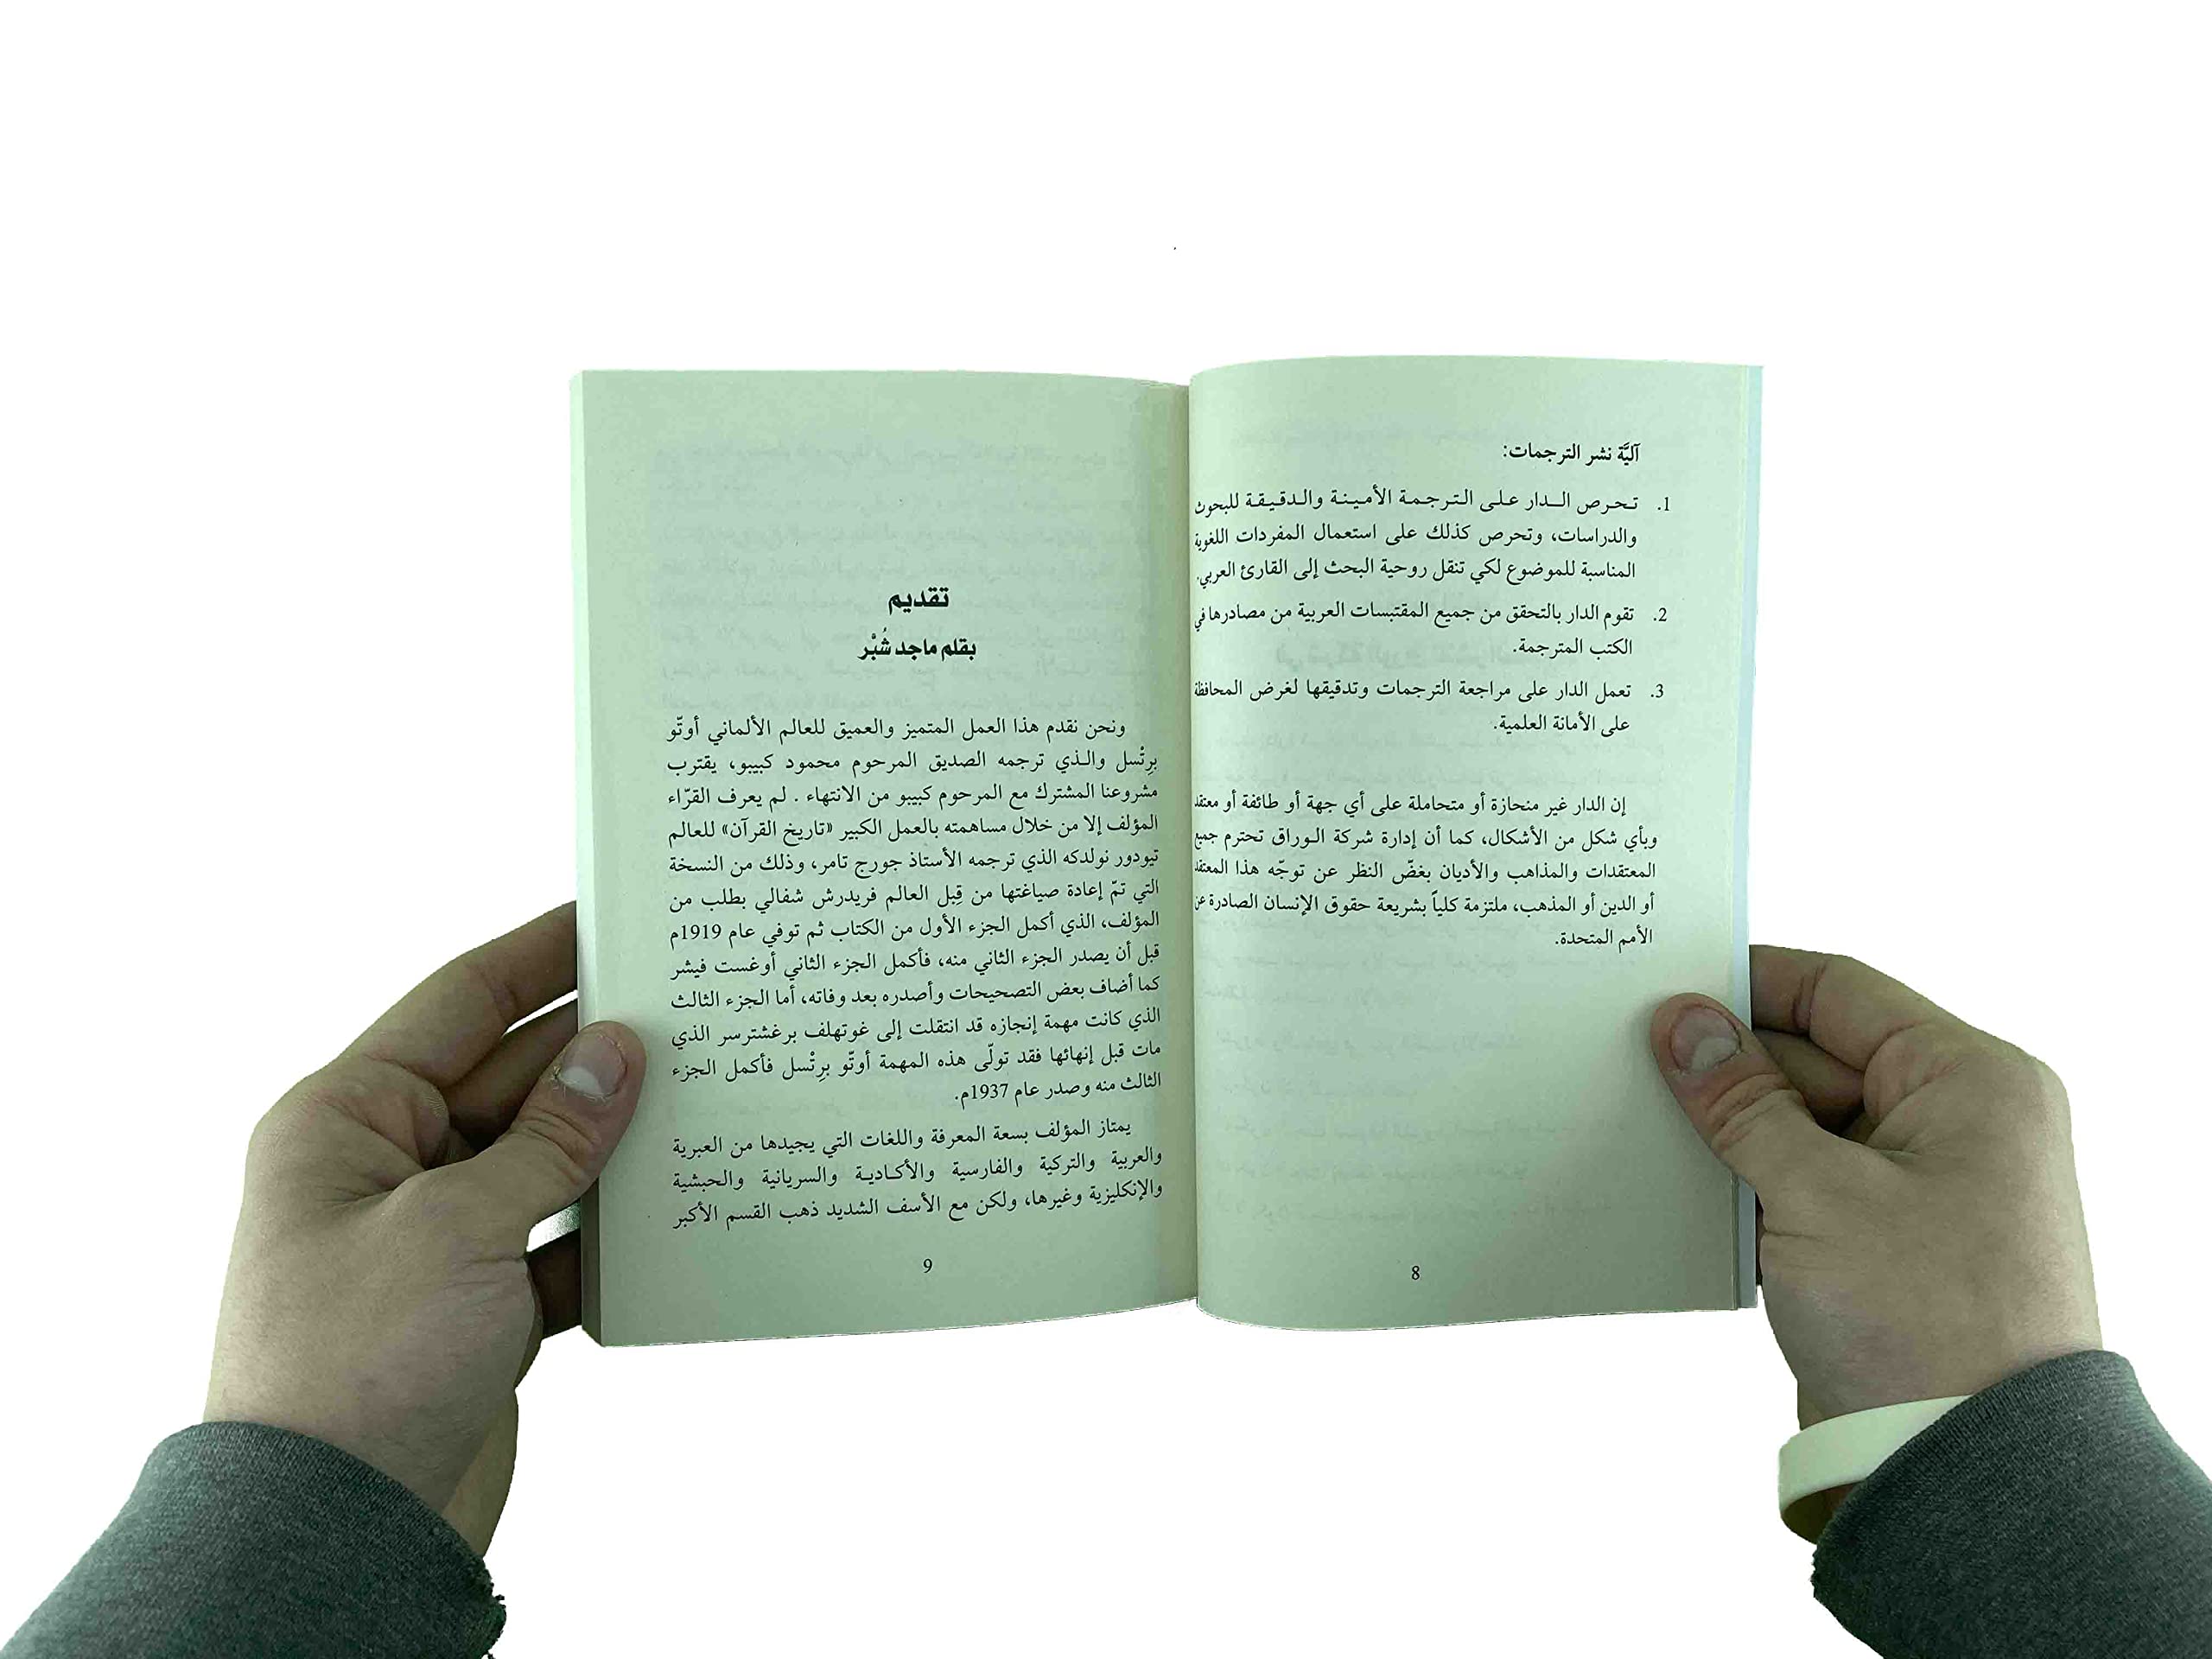 آليَّة نشر الترجمات:
1. تـحـرص الــدار عـلـى الـتـرجـمـة الأمـيـنـة والـدقـيـقـة للبحوث
والدراسات، وتحرص كذلك على استعمال المفردات اللغوية
المناسبة للموضوع لكي تنقل روحية البحث إلى القارئ العربي.
2. تقوم الدار بالتحقق من جميع المقتبسات العربية من مصادرها في
الكتب المترجمة.
3. تعمل الدار على مراجعة الترجمات وتدقيقها لغرض المحافظة
على الأمانة العلمية.
إن الدار غير منحازة أو متحاملة على أي جهة أو طائفة أو معتقد
وبأي شكل من الأشكال، كما أن إدارة شركة الـوراق تحترم جميع
المعتقدات والمذاهب والأديان بغضّ النظر عن توجّه هذا المعتقد
أو الدين أو المذهب، ملتزمة كلياً بشريعة حقوق الإنسان الصادرة عن
الأمم المتحدة.
8
تقديم
بقلم ماجد شُبَّر
ونحن نقدم هذا العمل المتميز والعميق للعالم الألماني أوتّو
برِتْسل والـذي ترجمه الصديق المرحوم محمود كبيبو، يقترب
مشروعنا المشترك مع المرحوم كبيبو من الانتهاء . لم يعرف القرّاء
المؤلف إلا من خلال مساهمته بالعمل الكبير «تاريخ القرآن» للعالم
تيودور نولدكه الذي ترجمه الأستاذ جورج تامر، وذلك من النسخة
التي تمّ إعادة صياغتها من قِبل العالم فريدرش شفالي بطلب من
المؤلف، الذي أكمل الجزء الأول من الكتاب ثم توفي عام 1919م
قبل أن يصدر الجزء الثاني منه، فأكمل الجزء الثاني أوغست فيشر
كما أضاف بعض التصحيحات وأصدره بعد وفاته، أما الجزء الثالث
الذي كانت مهمة إنجازه قد انتقلت إلى غوتهلف برغشترسر الذي
مات قبل إنهائها فقد تولّى هذه المهمة أوتّو برِتْسل فأكمل الجزء
الثالث منه وصدر عام 1937م.
يمتاز المؤلف بسعة المعرفة واللغات التي يجيدها من العبرية
والعربية والتركية والفارسية والأكـاديـة والسريانية والحبشية
والإنكليزية وغيرها، ولكن مع الأسف الشديد ذهب القسم الأكبر
9